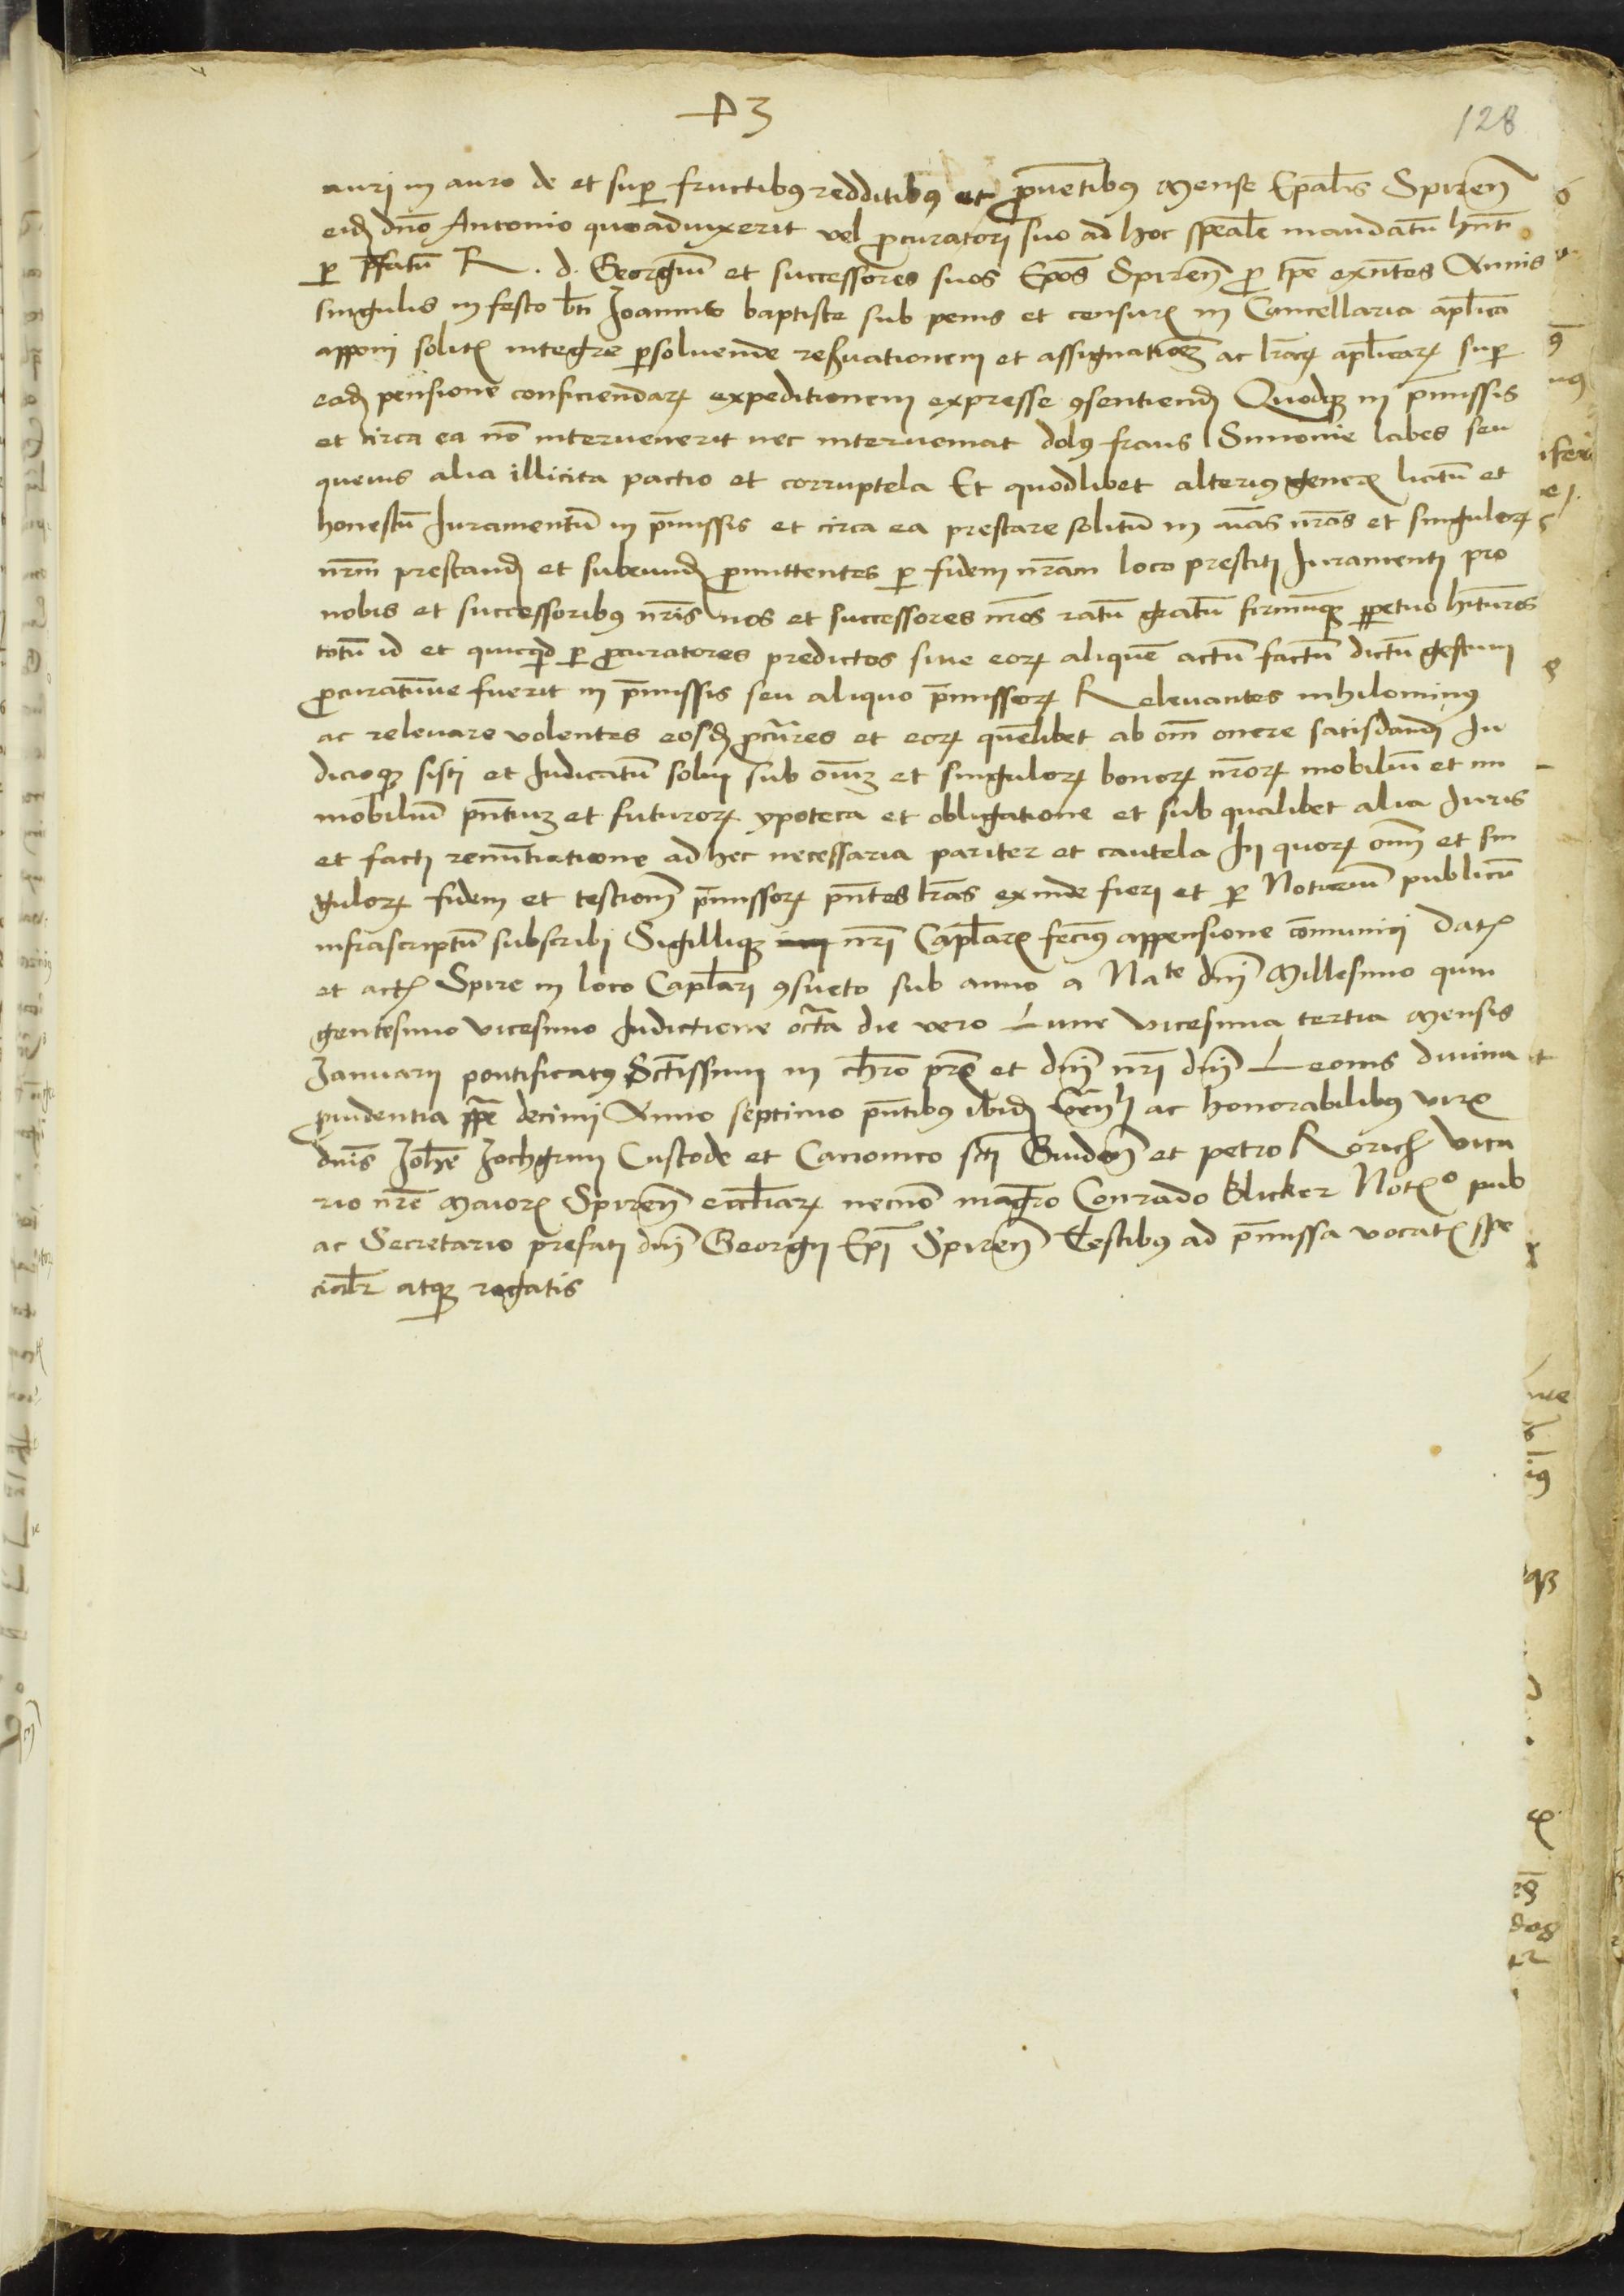 +3
128
auri in auro de et sup fructibꝰ redditibꝰ et ꝓuētibꝰ Mense Ep̄alis Spireñ
eidꝫ dn̄o Antonio quoad vixerit vel ꝓcuratori suo ad hoc sp̄eale mandatū hn̄ti
ꝑ p̄fatū R. d. Georgiū et successores suos Ep̄os Spireñ ꝓ tp̄e exn̄tes Annis
singulis in festo bt̄i Joannis baptiste sub penis et censurꝭ in Cancellaria ap̄lica
apponi solitꝭ integre ꝑsoluende reßuationem et assignationeꝫ ac lr̄arꝝ ap̄licarꝝ sup
eadꝫ pensione conficiendarꝝ expeditionem expresse ꝯsentiendꝫ Quodqꝫ in p̄missis
et circa ea nō interuenerit nec interueniat dolꝰ fraus Simonie labes seu
queuis alia illicita pactio et corruptela Et quodlibet alteriꝰ generꝭ licitū et
honestū Juramentū in p̄missis et circa ea prestare solitū in aīas nr̄as et singulorꝝ
nr̄m prestandꝫ et subeundꝫ ꝓmittentes ꝑ fidem nr̄am loco prestiti Juramenti pro
nobis et successoribꝰ nr̄is nos et successores nr̄os ratū gratū firmūqꝫ ꝑpetuo hituros
totū id et quicqd ꝑ ꝓcuratores predictos siue eorꝝ aliquē actū factū dictū gestum
ꝓcuratūue fuerit in p̄missis seu aliquo p̄missorꝝ Releuantes nihilominꝰ
ac releuare volentes eosdꝫ ꝓcur̄es et eorꝝ quēlibet ab om̄i onere satisdandi Ju
dicioqꝫ sisti et Judicatū solui sub oīuꝫ et singulorꝝ bonorꝝ nr̄orꝝ mobiliū et im
mobiliū pn̄tiuꝫ et futurorꝝ ypoteca et obligatione et sub qualibet alia Juris
et facti renūtiatione ad hec necessaria pariter et cautela In quorꝝ oīm et sin
gulorꝝ fidem et testioniū p̄missorꝝ pn̄tes lr̄as exinde fieri et ꝑ Notariū publicū
infrascriptū subscribi Sigilliqꝫ nr̄i Capl̄arꝭ fecimꝰ appensione cōmuniri Datꝭ
et actꝭ Spire in loco Capl̄ari ꝯsueto sub anno a Nate dn̄i Millesimo quin
gentesimo vicesimo Indictione octa die vero Lune vicesima tertia Mensis
Januarii pontificatꝰ Sctissimi in chr̄o pr̄is et dn̄i nr̄i dn̄i Leonis diuina
ꝓuidentia ppe decimi Anno septimo pn̄tibꝰ ibidꝫ ac honorabilibꝰ virꝭ
dn̄is Joh̄e Jochgrim Custode et Canonico sct̄i Guidoñ et petro Rorich vica
rio nr̄e Maiorꝭ Spireñ eccliarꝝ necnō magr̄o Conrado Blicker Notꝭo pub
ac Secretario prefati dn̄i Georgii Ep̄i Spireñ Testibꝰ ad p̄missa vocatꝭ spe
cialr̄ atqꝫ rogatis